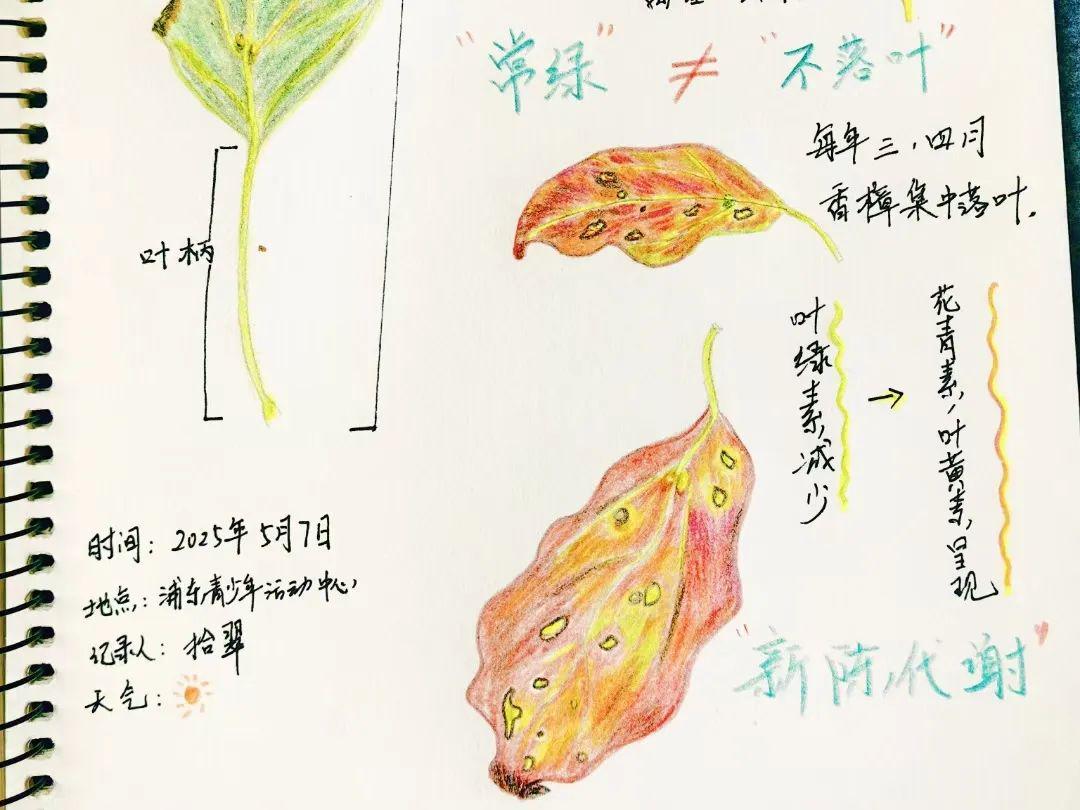 "常绿" ≠ "不落叶"
每年三、四月
香樟集中落叶.
叶柄
叶绿素减少
→
花青素、叶黄素呈现
"新陈代谢"
时间: 2025年5月7日
地点: 浦东青少年活动中心
记录人: 拾翠
天气: